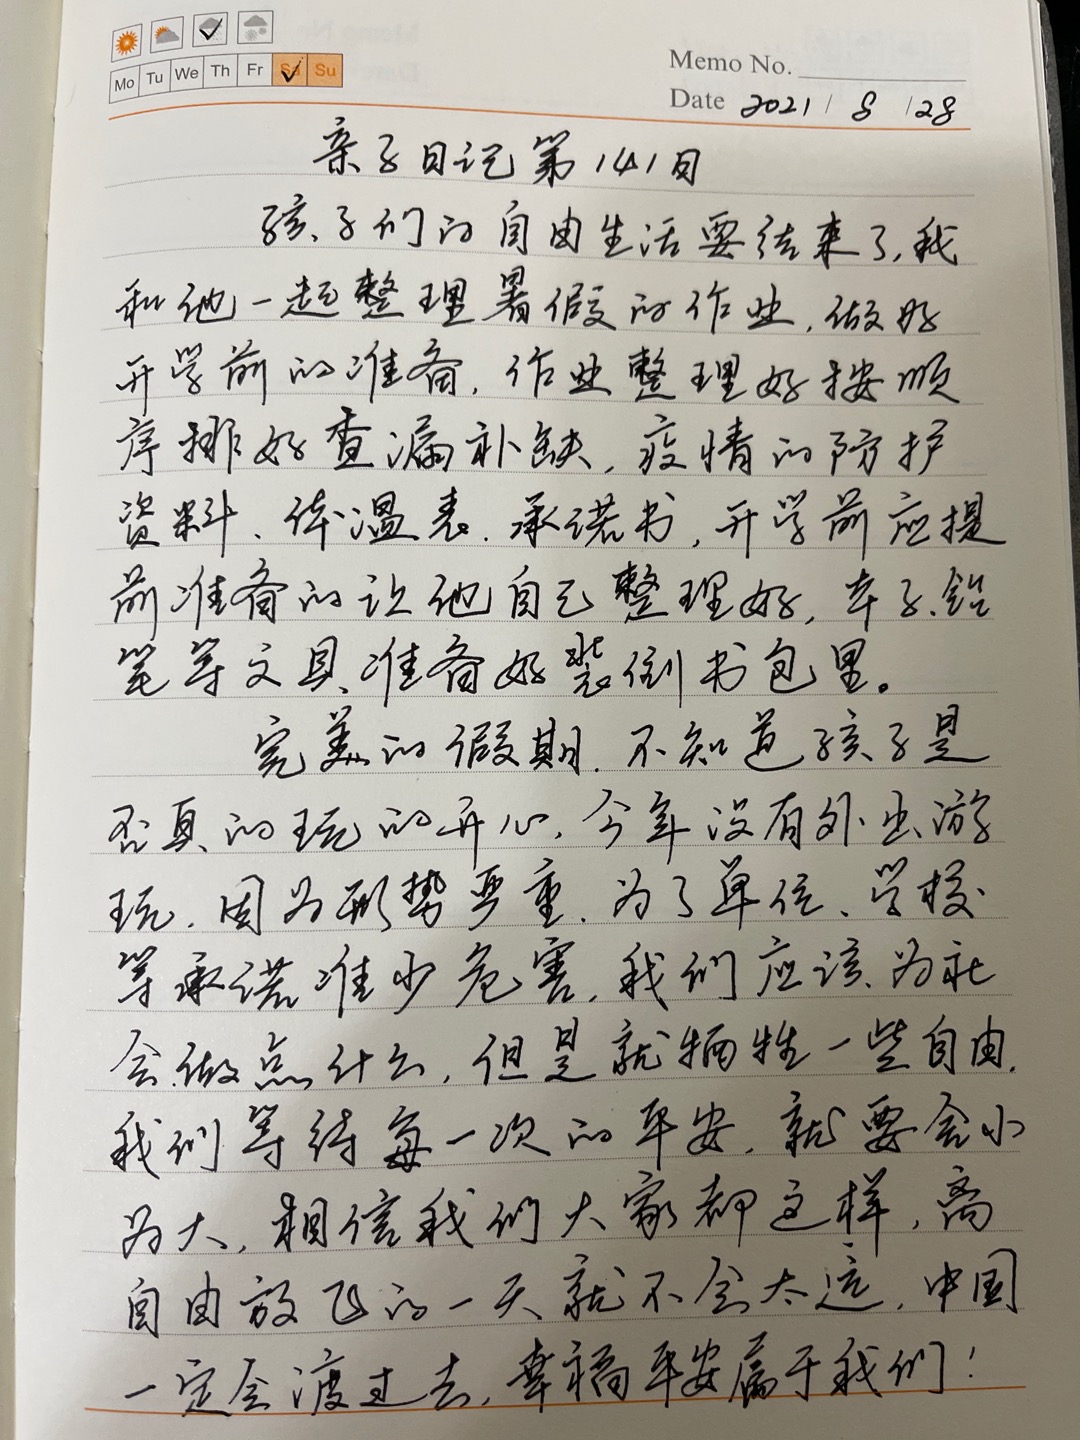 Mo Tu We Th Fr Sa Su
Memo No.
Date 2021/8/28
亲子日记第141日
孩子们的自由生活要结束了,我
和他一起整理暑假的作业,做好
开学前的准备,作业整理好按顺
序排好查漏补缺,疫情的防护
资料、体温表、承诺书,开学前应提
前准备的让他自己整理好,本子、铅
笔等文具、准备好装倒书包里。
完美的假期,不知道孩子是
否真的玩的开心,今年没有外出游
玩,因为形势严重,为了单位、学校
等承诺准少危害,我们应该为社
会做点什么,但是就牺牲一些自由,
我们等待每一次的平安,就要舍小
为大,相信我们大家都这样,离
自由放飞的一天就不会太远,中国
一定会渡过去,幸福平安属于我们!